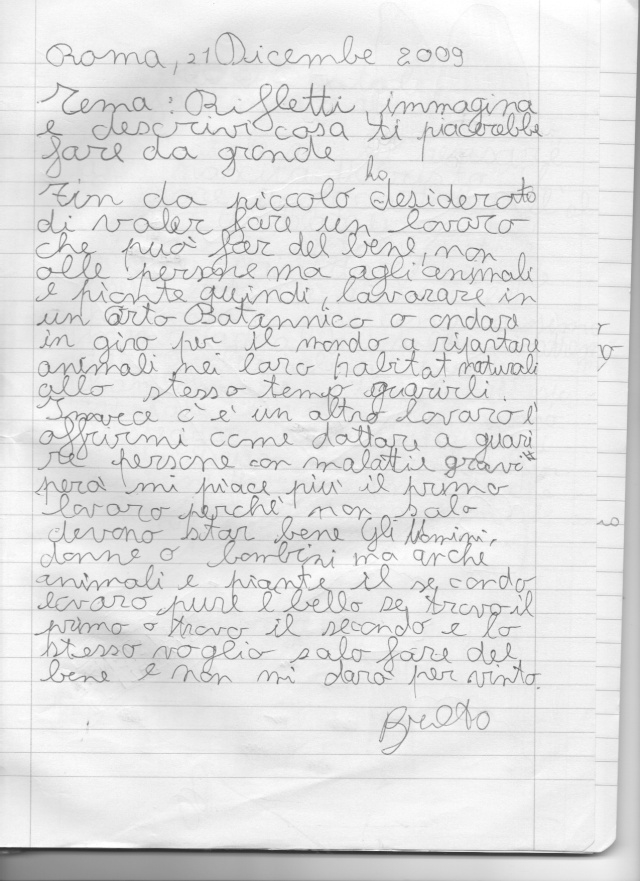 Roma, 21 Dicembre 2009
Tema: Rifletti, immagina
e descrivi cosa ti piacerebbe
fare da grande
Fin da piccolo ho desiderato
di valer fare un lavaro
che può far del bene, non
alle persone ma agli animali
e piante quindi, lavarare in
un Orto Batannico o andare
in giro per il mondo a risartare
animali nei laro habitat naturali
allo stesso tempo guarirli.
Invece c'è un altro lavaro è
affrirmi came dattare a guari
re persone con malattie gravi
però mi piace più il primo
lavaro perchè non salo
devono star bene gli Uomini,
donne o bambini ma anche
animali e piante il secondo
lavaro pure è bello se travo il
primo o travo il secondo è lo
stesso voglio salo fare del
bene e non mi darò per vinto.